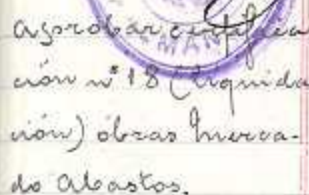 aprobar certifica
ción nº 18 (liquida
ción) obras Merca-
do Abastos.